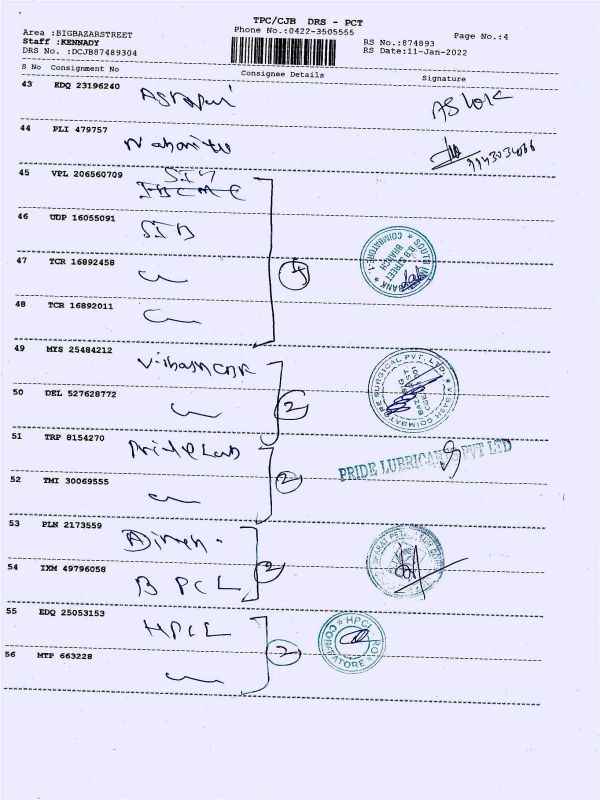 TPC/CJB DRS - PCT
Area :BIGBAZARSTREET
Phone No.:0422-3505555
Page No.:4
Staff :KENNADY
RS No.:874893
DRS No. :DCJB87489304
RS Date:11-Jan-2022
S No Consignment No
Consignee Details
Signature
43 EDQ 23196240
ASHOK
44 PLI 479757
45 VPL 206560709
SIB
46 UDP 16055091
SIB
SOUTH IND BANK
B.B. STREET
BRANCH
COIMBATORE-1
47 TCR 16892458
4
48 TCR 16892011
49 MYS 25484212
50 DEL 527628772
2
51 TRP 8154270
Pride Lub
PRIDE LUBRICANTS PVT LTD
52 TMI 30069555
2
53 PLN 2173559
54 IXM 49796058
BPCL
2
55 EDQ 25053153
HPCL
HPCL
COIMBATORE
56 MTP 663228
2